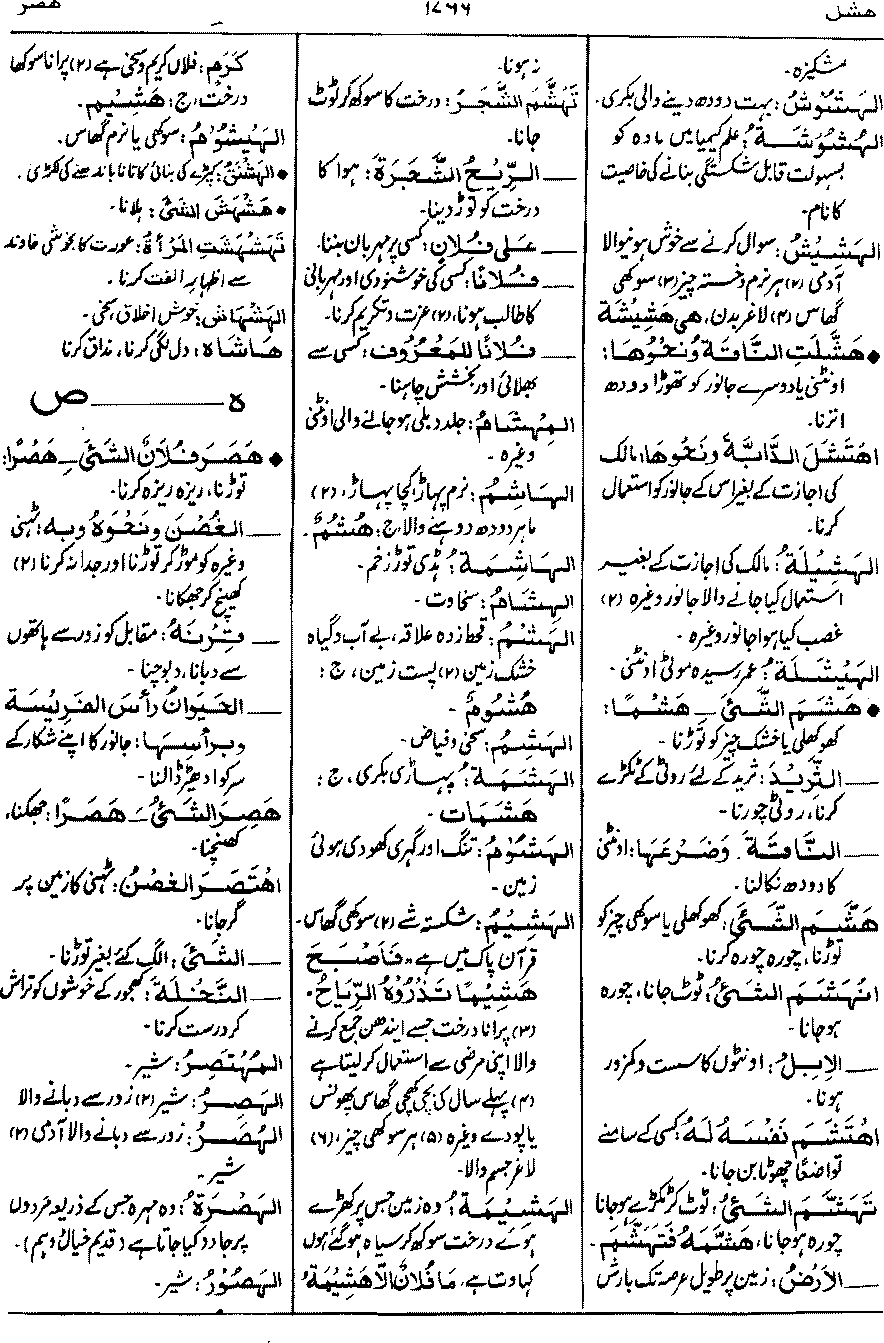 هشل
۱۷۶۶
هصر
مشکیزہ۔
الهَشُوْشُ: بہت دودھ دینے والی بکری۔
الهُشُوْشَةُ: علم کیمیا میں مادہ کو
بسہولت قابل شکستگی بنانے کی خاصیت
کا نام۔
الهَشِيْشُ: سوال کرنے سے خوش ہونیوالا
آدمی (۲) ہر نرم و خستہ چیز (۳) سوکھی
گھاس (۴) لاغر بدن، هي هَشِيْشَة
• هَشَلَتِ النَّاقَةُ وَنَحْوُهَا:
اونٹنی یا دوسرے جانور کو تھوڑا دودھ
اترنا۔
اهْتَشَلَ الدَّابَّةَ وَنَحْوَهَا: مالک
کی اجازت کے بغیر اس کے جانور کو استعمال
کرنا۔
الهَشِيْلَةُ: مالک کی اجازت کے بغیر
استعمال کیا جانے والا جانور وغیرہ (۲)
غصب کیا ہوا جانور وغیرہ۔
الهَيْشَلَةُ: عمر رسیدہ موٹی اونٹنی۔
• هَشَمَ الشَّيْءَ ـِ هَشْمًا:
کھوکھلی یا خشک چیز کو توڑنا۔
ــــ الثَّرِيْدَ: ثرید کے لئے روٹی کے ٹکڑے
کرنا، روٹی چورنا۔
ــــ النَّاقَةَ وَضَرْعَهَا: اونٹنی
کا دودھ نکالنا۔
هَشَّمَ الشَّيْءَ: کھوکھلی یا سوکھی چیز کو
توڑنا، چورہ چورہ کرنا۔
انْهَشَمَ الشَّيْءُ: ٹوٹ جانا، چورہ
ہو جانا۔
ــــ الإِبِلُ: اونٹوں کا سست و کمزور
ہونا۔
اهْتَشَمَ نَفْسَهُ لَهُ: کسی کے سامنے
تواضعًا چھوٹا بن جانا۔
تَهَشَّمَ الشَّيْءُ: ٹوٹ کر ٹکڑے ہو جانا
چورہ ہو جانا، هَشَّمَهُ فَتَهَشَّمَ۔
ــــ الأَرْضُ: زمین پر طویل عرصہ تک بارش
نہ ہونا۔
تَهَشَّمَ الشَّجَرُ: درخت کا سوکھ کر ٹوٹ
جانا۔
ــــ الرِّيْحُ الشَّجَرَةَ: ہوا کا
درخت کو توڑ دینا۔
ــــ عَلَى فُلَانٍ: کسی پر مہربان بننا۔
ــــ فُلَانًا: کسی کی خوشنودی اور مہربانی
کا طالب ہونا، (۲) عزت و تکریم کرنا۔
ــــ فُلَانًا لِلْمَعْرُوْفِ: کسی سے
بھلائی اور بخشش چاہنا۔
المِهْشَامُ: جلد دبلی ہو جانے والی اونٹنی
وغیرہ۔
الهَاشِمُ: نرم پہاڑ، کچا پہاڑ، (۲)
ماہر دودھ دوہنے والا، ج: هُشُمٌ۔
الهَاشِمَةُ: ہڈی توڑ زخم۔
الهِشَامُ: سخاوت۔
الهَشْمُ: قحط زدہ علاقہ، بے آب و گیاہ
خشک زمین (۲) پست زمین، ج:
هُشُومٌ۔
الهَشِمُ: سخی و فیاض۔
الهَشَمَةُ: پہاڑی بکری، ج:
هَشَمَات۔
الهَشُوْمُ: تنگ اور گہری کھودی ہوئی
زمین۔
الهَشِيْمُ: شکستہ شے (۲) سوکھی گھاس۔
قرآن پاک میں ہے "فَأَصْبَحَ
هَشِيْمًا تَذْرُوْهُ الرِّيَاحُ"۔
(۳) پرانا درخت جسے ایندھن جمع کرنے
والا اپنی مرضی سے استعمال کر لیتا ہے
(۴) پچھلے سال کی بچی کھچی گھاس پھونس
یا پودے وغیرہ (۵) ہر سوکھی چیز، (۶)
لاغر جسم والا۔
الهَشِيْمَةُ: وہ زمین جس پر کھڑے
ہوئے درخت سوکھ کر سیاہ ہو گئے ہوں
کہاوت ہے، مَا فُلَانٌ الَّا هَشِيْمَةُ
كَرَمٍ: فلاں کریم و سخی ہے (۲) پرانا سوکھا
درخت، ج: هَشِيْم۔
الهَيْشُوْمُ: سوکھی یا نرم گھاس۔
• کپڑے کی بنائی کا تانا باندھنے کی لکڑی۔
• هَشْهَشَ الشَّيْءَ: ہلانا۔
تَهَشْهَشَتِ المَرْأَةُ: عورت کا بخوشی خاوند
سے اظہار الفت کرنا۔
الهَشْهَاشُ: خوش اخلاق، سخی۔
هَاشَاهُ: دل لگی کرنا، مذاق کرنا
ہ ــــــــ ص
• هَصَرَ فُلَانٌ الشَّيْءَ ـِ هَصْرًا:
توڑنا، ریزہ ریزہ کرنا۔
ــــ الغُصْنَ وَنَحْوَهُ وبِهِ: ٹہنی
وغیرہ کو موڑ کر توڑنا اور جدا نہ کرنا (۲)
کھینچ کر جھکانا۔
ــــ قِرْنَهُ: مقابل کو زور سے ہاتھوں
سے دبانا، دبوچنا۔
ــــ الحَيَوَانُ رَأْسَ الفَرِيْسَةِ
وبِرَأْسِهَا: جانور کا اپنے شکار کے
سر کو ادھیڑ ڈالنا۔
هَصِرَ الشَّيْءُ ـَ هَصَرًا: جھکنا،
کھنچنا۔
اهْتَصَرَ الغُصْنُ: ٹہنی کا زمین پر
گر جانا۔
ــــ الشَّيْءَ: الگ کئے بغیر توڑنا۔
ــــ النَّخْلَةَ: کھجور کے خوشوں کو تراش
کر درست کرنا۔
المُهْتَصِرُ: شیر۔
الهَصِرُ: شیر (۲) زور سے دبانے والا
الهُصَرُ: زور سے دبانے والا آدمی (۲)
شیر۔
الهَصْرَةُ: وہ مہرہ جس کے ذریعہ مردوں
پر جادو کیا جاتا ہے (قدیم خیال و وہم)۔
الهَصُوْرُ: شیر۔